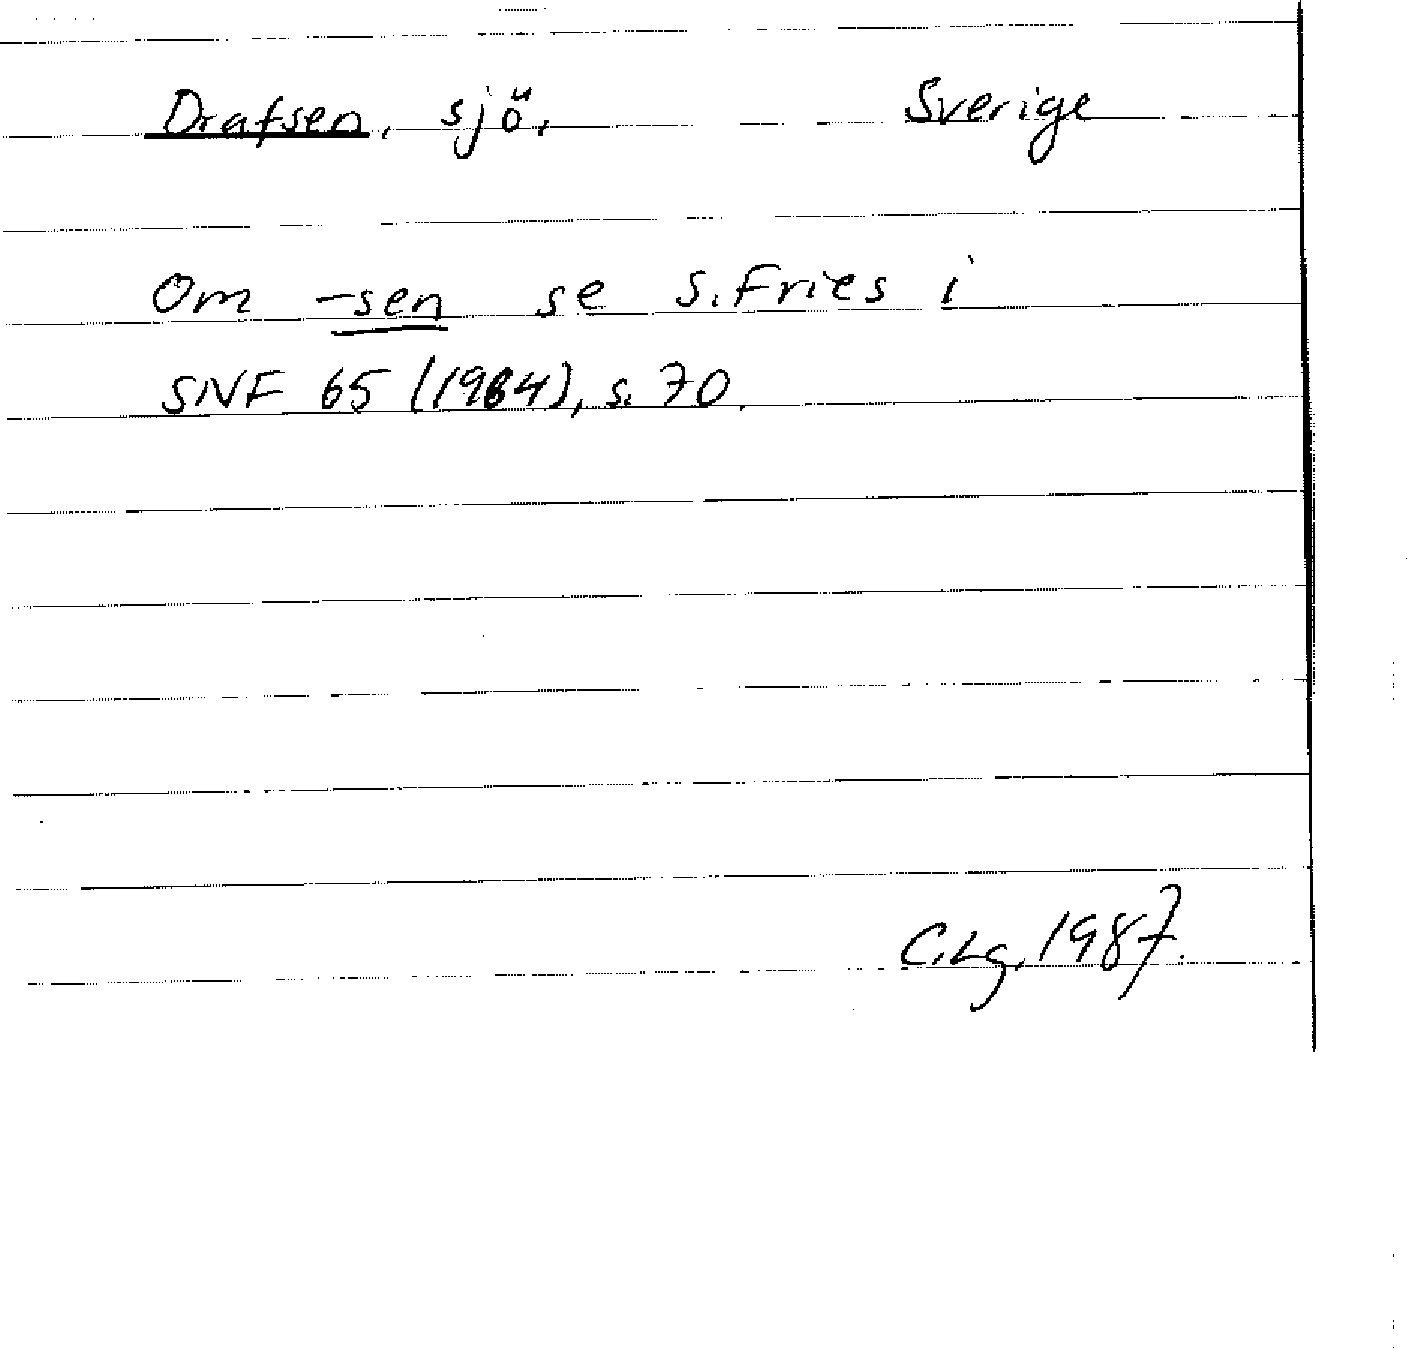 Drafsen, sjö, Sverige
Om -sen se S. Fries i
SNF 65 (1984), s. 70.
C.Lg. 1987.